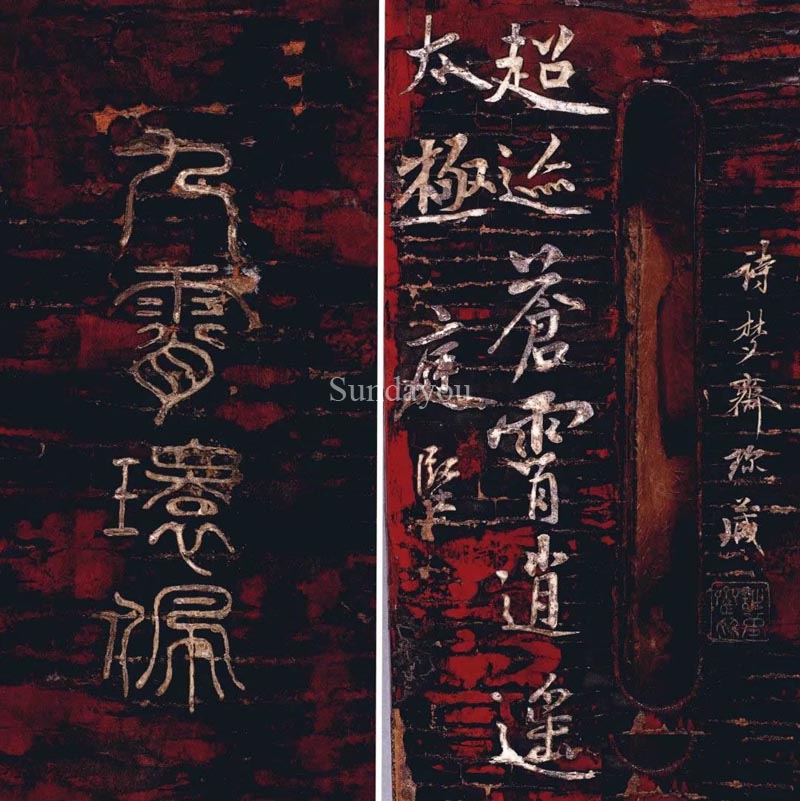 九霄環佩
詩梦齋珍藏
超迹蒼霄逍遥
太極 庭堅
Sundayou